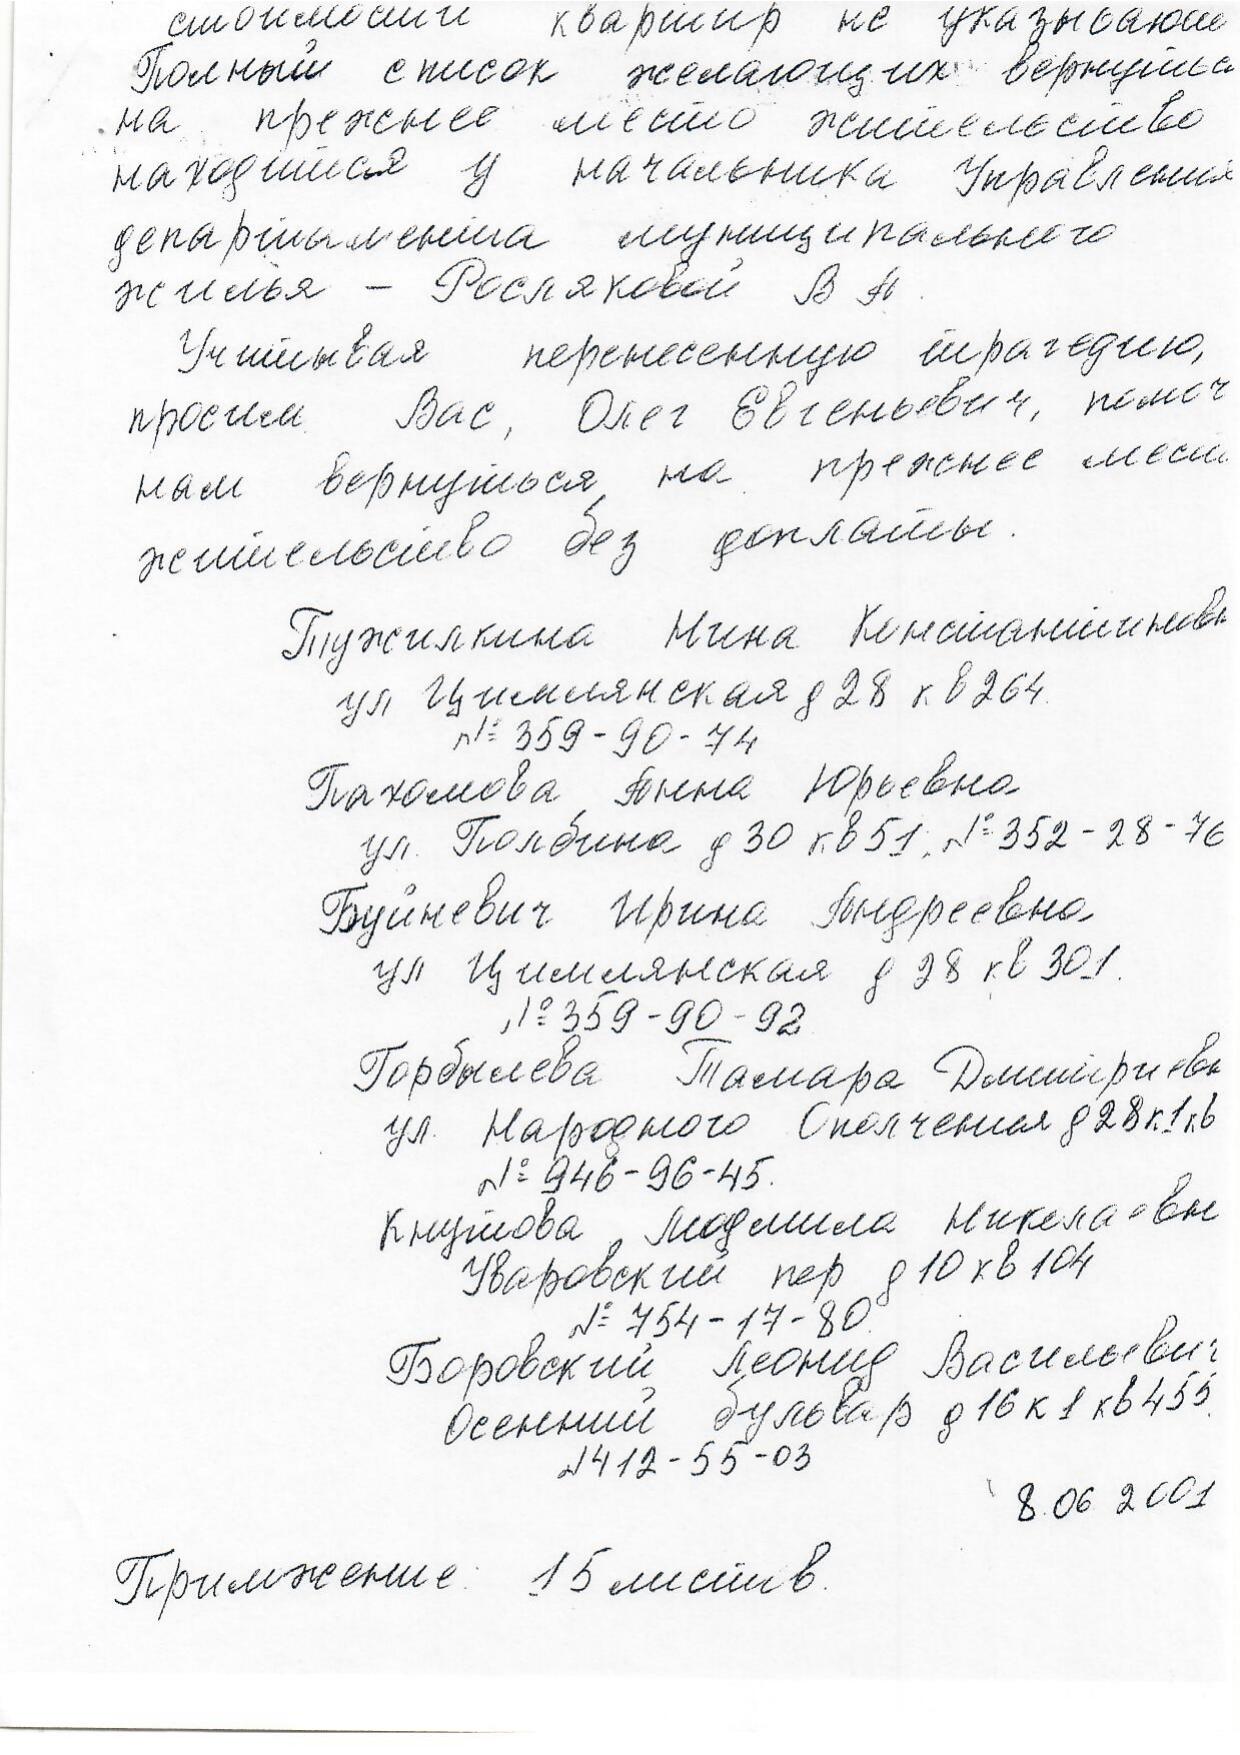 стоимости квартир не указывают
Полный список желающих вернуться
на прежнее место жительство
находится у начальника Управления
департамента муниципального
жилья – Росляковой В А.
Учитывая перенесенную трагедию,
просим Вас, Олег Евгеньевич, помоч
нам вернуться на прежнее мест
жительство без доплаты.
Тужилкина Нина Константиновн
ул Цимлянская д 28 кв 264.
№ 359-90-74
Пахомова Анна Юрьевна
ул. Полбина д 30 кв 51, № 352-28-76
Буйневич Ирина Андреевна
ул Цимлянская д 28 кв 301.
№ 359-90-92
Горбылева Тамара Дмитриевн
ул. Народного Ополчения д 28 к.1 кв
№ 946-96-45.
Кнутова Людмила Николаевн
Уваровский пер д 10 кв 104
№ 754-17-80.
Боровский Леонид Васильевич
Осенний бульвар д 16 к 1 кв 455.
№ 412-55-03
8.06 2001
Приложение: 15 листов.